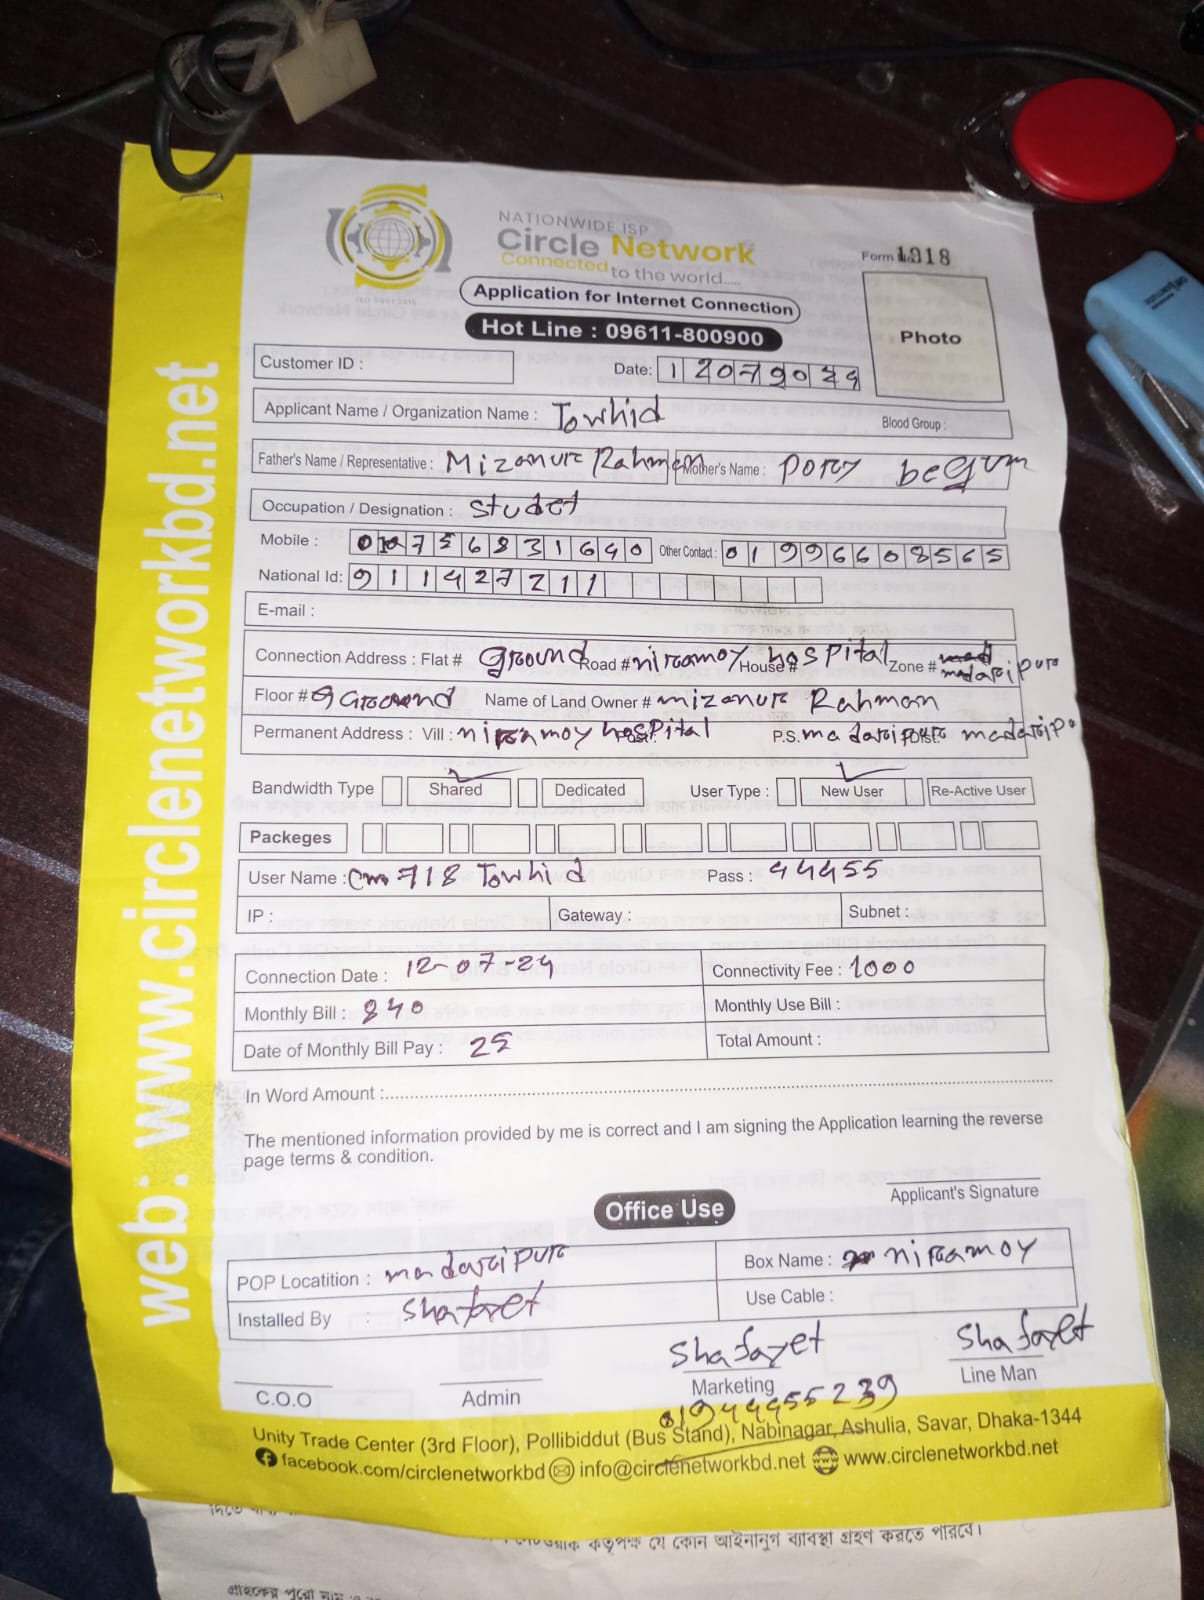 web: www.circlenetworkbd.net
NATIONWIDE ISP
Circle Network
Connected to the world.....
ISO 9001:2015
Form 1918
Application for Internet Connection
Hot Line : 09611-800900
Photo
Customer ID :
Date: 12072024
Applicant Name / Organization Name : Towhid
Blood Group :
Father's Name / Representative : Mizanur Rahman Mother's Name : pory begum
Occupation / Designation : studet
Mobile : 01756831640 Other Contact : 01996608565
National Id: 911427211
E-mail :
Connection Address : Flat # Ground Road # niramoy House # hospital Zone # madaripur
Floor # Ground Name of Land Owner # mizanur Rahman
Permanent Address : Vill : niramoy hospital P.S. madaripur madaripu
Bandwidth Type Shared Dedicated User Type : New User Re-Active User
Packeges
User Name : Cm718 Towhid Pass : 44455
IP : Gateway : Subnet :
Connection Date : 12-07-24 Connectivity Fee : 1000
Monthly Bill : 840 Monthly Use Bill :
Date of Monthly Bill Pay : 25 Total Amount :
In Word Amount :
The mentioned information provided by me is correct and I am signing the Application learning the reverse
page terms & condition.
Applicant's Signature
Office Use
POP Locatition : madaripur Box Name : niramoy
Installed By : Shafayet Use Cable :
Shafayet Shafayet
C.O.O Admin Marketing Line Man
01944455239
Unity Trade Center (3rd Floor), Pollibiddut (Bus Stand), Nabinagar, Ashulia, Savar, Dhaka-1344
facebook.com/circlenetworkbd info@circlenetworkbd.net www.circlenetworkbd.net
কতৃপক্ষ যে কোন আইনানুগ ব্যাবস্থা গ্রহণ করতে পারবে।
গ্রাহকের পুরো নাম